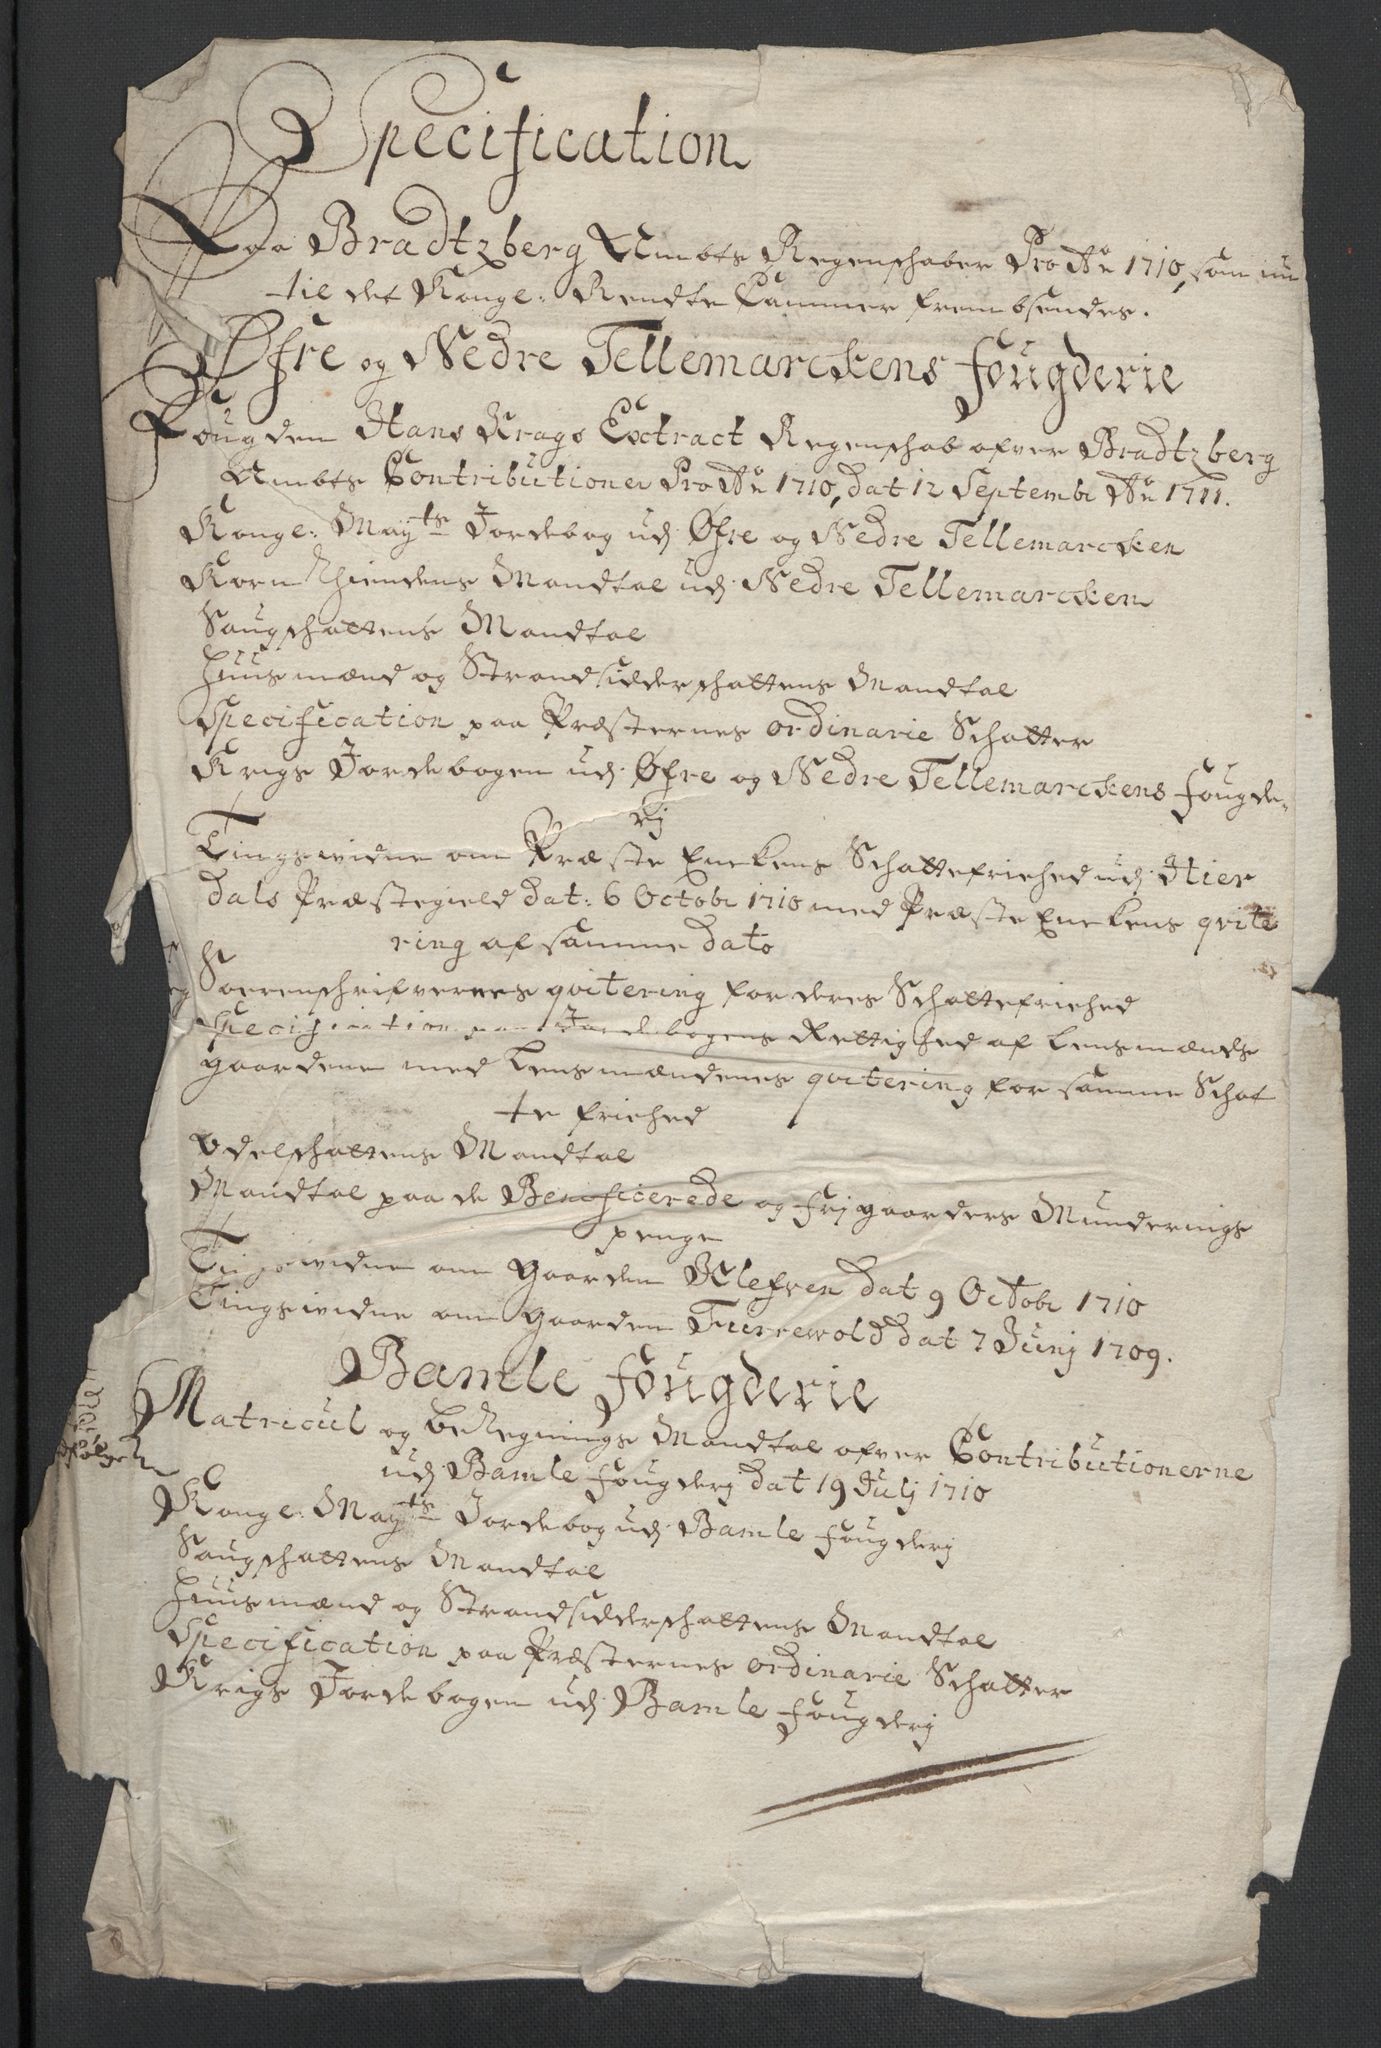 Specification
Paa Bradtzberg Ambts Regenschaber Pro Ao 1710, som nu
til det Kongel: Rendte Cammer frembsendes.
Øfre og Nedre Tellemarckens fougderie
Fougden Hans Krags Extract Regenschab ofver Bradtzberg
Ambts Contributioner Pro Ao 1710, dat 12 Septembr Ao 1711.
Kongel: Mayts Jordebog udj Øfre og Nedre Tellemarcken
Korn Thiendens Mandtal udj Nedre Tellemarcken
Saugschattens Mandtal
Huusmænd og Strandsidderschattens Mandtal
Specification paa Præsternes ordinarie Schatter
Krigs Jordebogen udj Øfre og Nedre Tellemarckens fougde-
rij
Tingsvidne om Præste Enckens Schattefriehed udj Hier
dals Præstegield dat: 6 Octobr 1710 med Præste Enckens qvite
ring af samme dato
Sorenschrifvernes qvitering for deres Schattefriehed
Specification paa Jordebogens Rettighed af Lensmænds
gaardene med Lensmændenes qvitering for samme Schat
te friehed
Odelschattens Mandtal
Mandtal paa de Beneficerede og frj gaarders Munderings
penge
Tingsvidne om gaarden Klefven dat 9 Octobr 1710
Tingsvidne om gaarden Furrewold dat 7 Junj 1709.
Bamle fougderie
Matricul og beRegnings Mandtal ofver Contributionerne
udj Bamle fougderj dat 19 Julj 1710
Kongel: Mayts Jordebog udj Bamle fougderj
Saugschattens Mandtal
Huusmænd og Strandsidderschattens Mandtal
Specification paa Præsternes ordinarie Schatter
Krigs Jordebogen udj Bamle fougderj